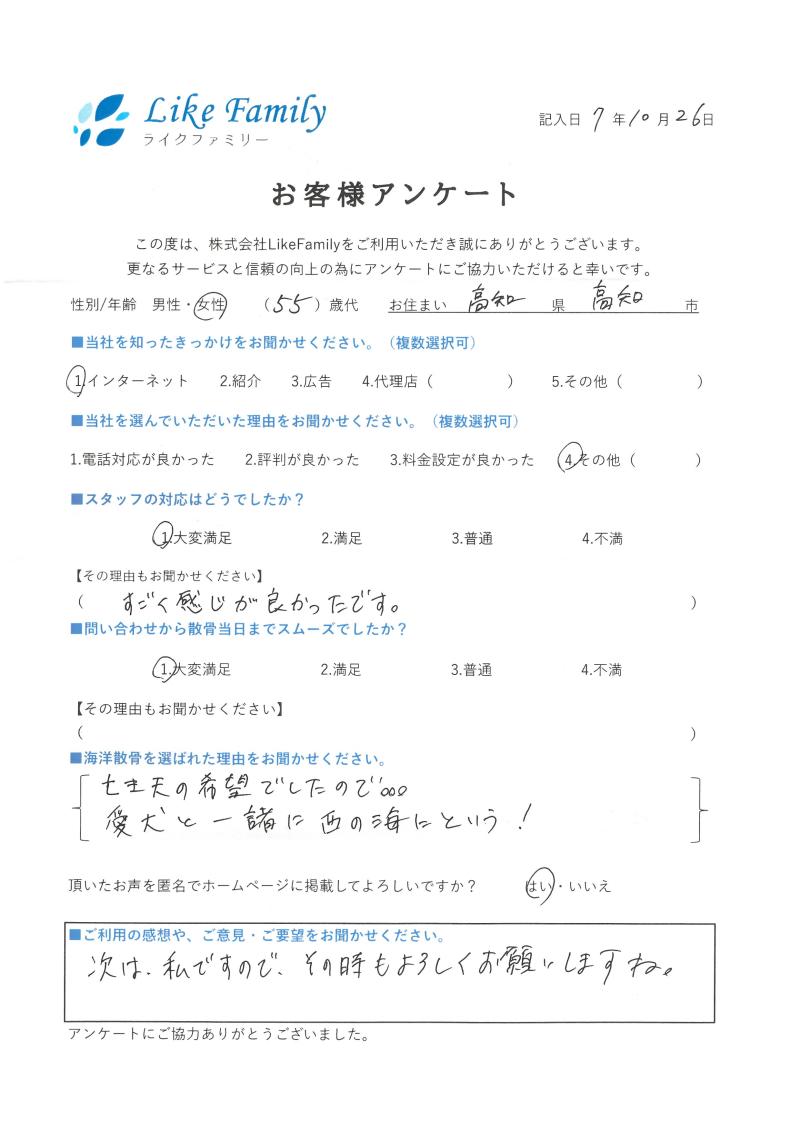 Like Family
ライクファミリー
記入日 7 年 10 月 26 日
お客様アンケート
この度は、株式会社LikeFamilyをご利用いただき誠にありがとうございます。
更なるサービスと信頼の向上の為にアンケートにご協力いただけると幸いです。
性別/年齢 男性・女性 （ 55 ）歳代 お住まい 高知 県 高知 市
■当社を知ったきっかけをお聞かせください。（複数選択可）
1.インターネット 2.紹介 3.広告 4.代理店（ ） 5.その他（ ）
■当社を選んでいただいた理由をお聞かせください。（複数選択可）
1.電話対応が良かった 2.評判が良かった 3.料金設定が良かった 4.その他（ ）
■スタッフの対応はどうでしたか？
1.大変満足 2.満足 3.普通 4.不満
【その理由もお聞かせください】
（ すごく感じが良かったです。 ）
■問い合わせから散骨当日までスムーズでしたか？
1.大変満足 2.満足 3.普通 4.不満
【その理由もお聞かせください】
（ ）
■海洋散骨を選ばれた理由をお聞かせください。
の希望でしたので。。。
愛犬と一諸に西の海にという！
頂いたお声を匿名でホームページに掲載してよろしいですか？ はい・いいえ
■ご利用の感想や、ご意見・ご要望をお聞かせください。
次は、私ですので、その時もよろしくお願いしますね。
アンケートにご協力ありがとうございました。